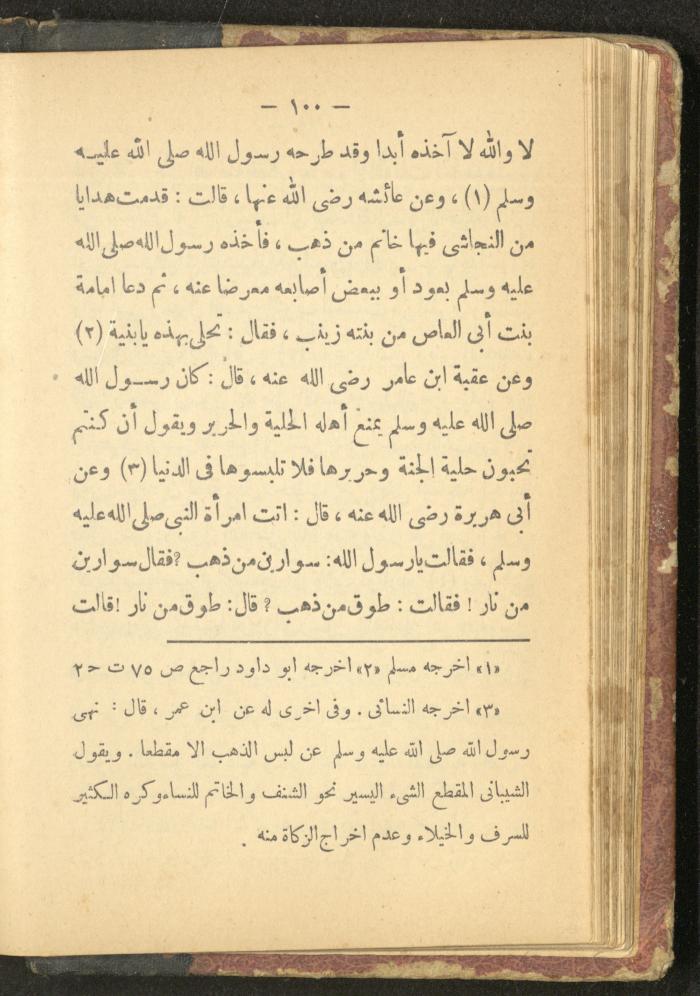 — ١٠٠ —
لا والله لا آخذه أبدا وقد طرحه رسول الله صلى الله عليه
وسلم (١) ، وعن عائشه رضى الله عنها ، قالت : قدمت هدايا
من النجاشى فيها خاتم من ذهب ، فأخذه رسول الله صلى الله
عليه وسلم بعود أو ببعض أصابعه معرضا عنه ، ثم دعا امامة
بنت أبى العاص من بنته زينب ، فقال : تحلى بهذه يابنية (٢)
وعن عقبة ابن عامر رضى الله عنه ، قال : كان رسول الله
صلى الله عليه وسلم يمنع أهله الحلية والحرير ويقول أن كنتم
تحبون حلية الجنة وحريرها فلا تلبسوها فى الدنيا (٣) وعن
أبى هريرة رضى الله عنه ، قال : اتت امرأة النبى صلى الله عليه
وسلم ، فقالت يارسول الله : سوارين من ذهب ؟ فقال سوارين
من نار ! فقالت : طوق من ذهب ؟ قال : طوق من نار ! قالت
«١» اخرجه مسلم «٢» اخرجه ابو داود راجع ص ٧٥ ت ح ٢
«٣» اخرجه النسائى . وفى اخرى له عن ابن عمر ، قال : نهى
رسول الله صلى الله عليه وسلم عن لبس الذهب الا مقطعا . ويقول
الشيبانى المقطع الشىء اليسير نحو الشنف والخاتم للنساء وكره الكثير
للسرف والخيلاء وعدم اخراج الزكاة منه .